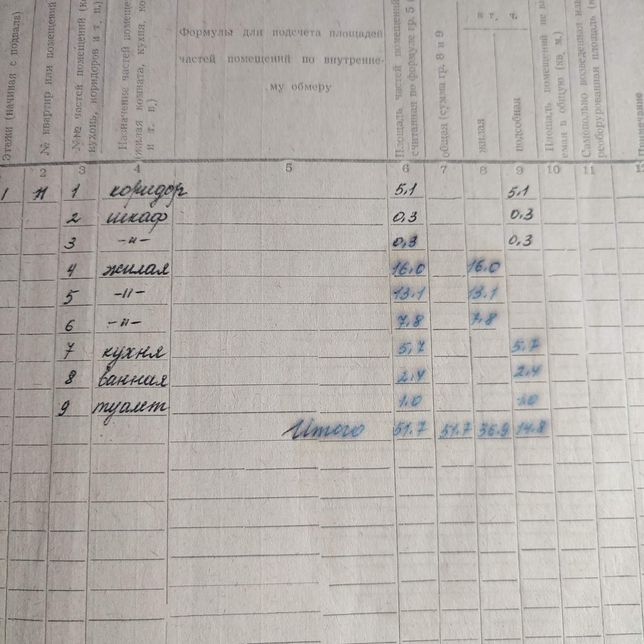 Этажи (начиная с подвала)
№ квартир или помещений
№№ частей помещений
кухонь, коридоров и т. п.)
Назначение частей помеще
(жилая комната, кухня,
и т. п.)
Формулы для подсчета площадей
частей помещений по внутренне-
му обмеру
Площадь частей помещений
считанная по формуле гр. 5
общая (сумма гр. 8 и 9
в т. ч.
жилая
подсобная
Площадь помещений не
емая в общую (кв. м.)
Самовольно возведенная или
реоборудованная площадь
Примечание
2 3 4 5 6 7 8 9 10 11
1 н 1 коридор 5,1 5,1
2 шкаф 0,3 0,3
3 -„- 0,3 0,3
4 жилая 16.0 16.0
5 -„- 13.1 13.1
6 -„- 7.8 7.8
7 кухня 5.7 5.7
8 ванная 2.4 2.4
9 туалет 1.0 1.0
Итого 51.7 51.7 36.9 14.8